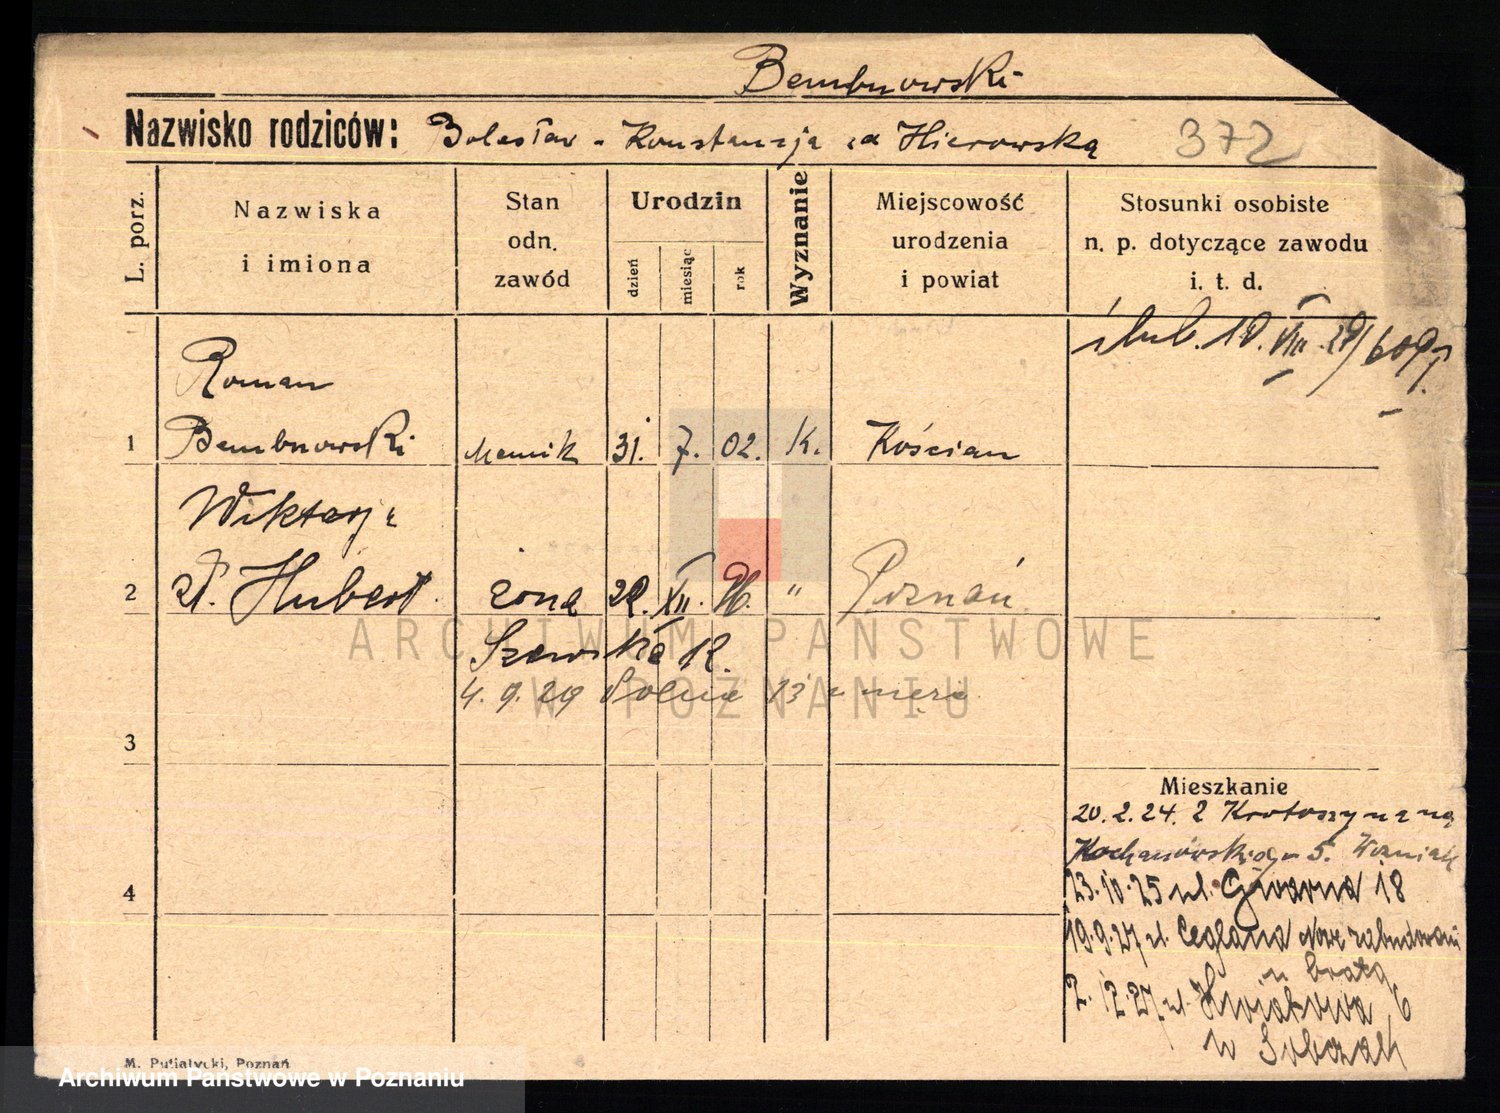 Bembnowski
Nazwisko rodziców: Bolesław - Konstancja zd Hierowska
372
L. porz.
Nazwiska
i imiona
Stan
odn.
zawód
Urodzin
dzień
miesiąc
rok
Wyznanie
Miejscowość
urodzenia
i powiat
Stosunki osobiste
n. p. dotyczące zawodu
i. t. d.
ślub. 10. VIII. 29/
Roman
1 Bembnowski 31. 7. 02. K. Kościan
Wiktorja
2 Hubert. żona XII. " Poznań
Szewska 12.
4. 9. 29 Polna 13 u męża
3
Mieszkanie
20. 2. 24. z Krotoszyna na
Kochanowskiego 5. Woźniak
4
23. 10. 25 ul. Gwarna 18
19. 9. 27 ul. Ceglana Nowe zabudowani
u brata
2. 12. 27 ul. Kwiatowa 6
M. Putiatycki, Poznań
ARCHIWUM PAŃSTWOWE
W POZNANIU
Archiwum Państwowe w Poznaniu